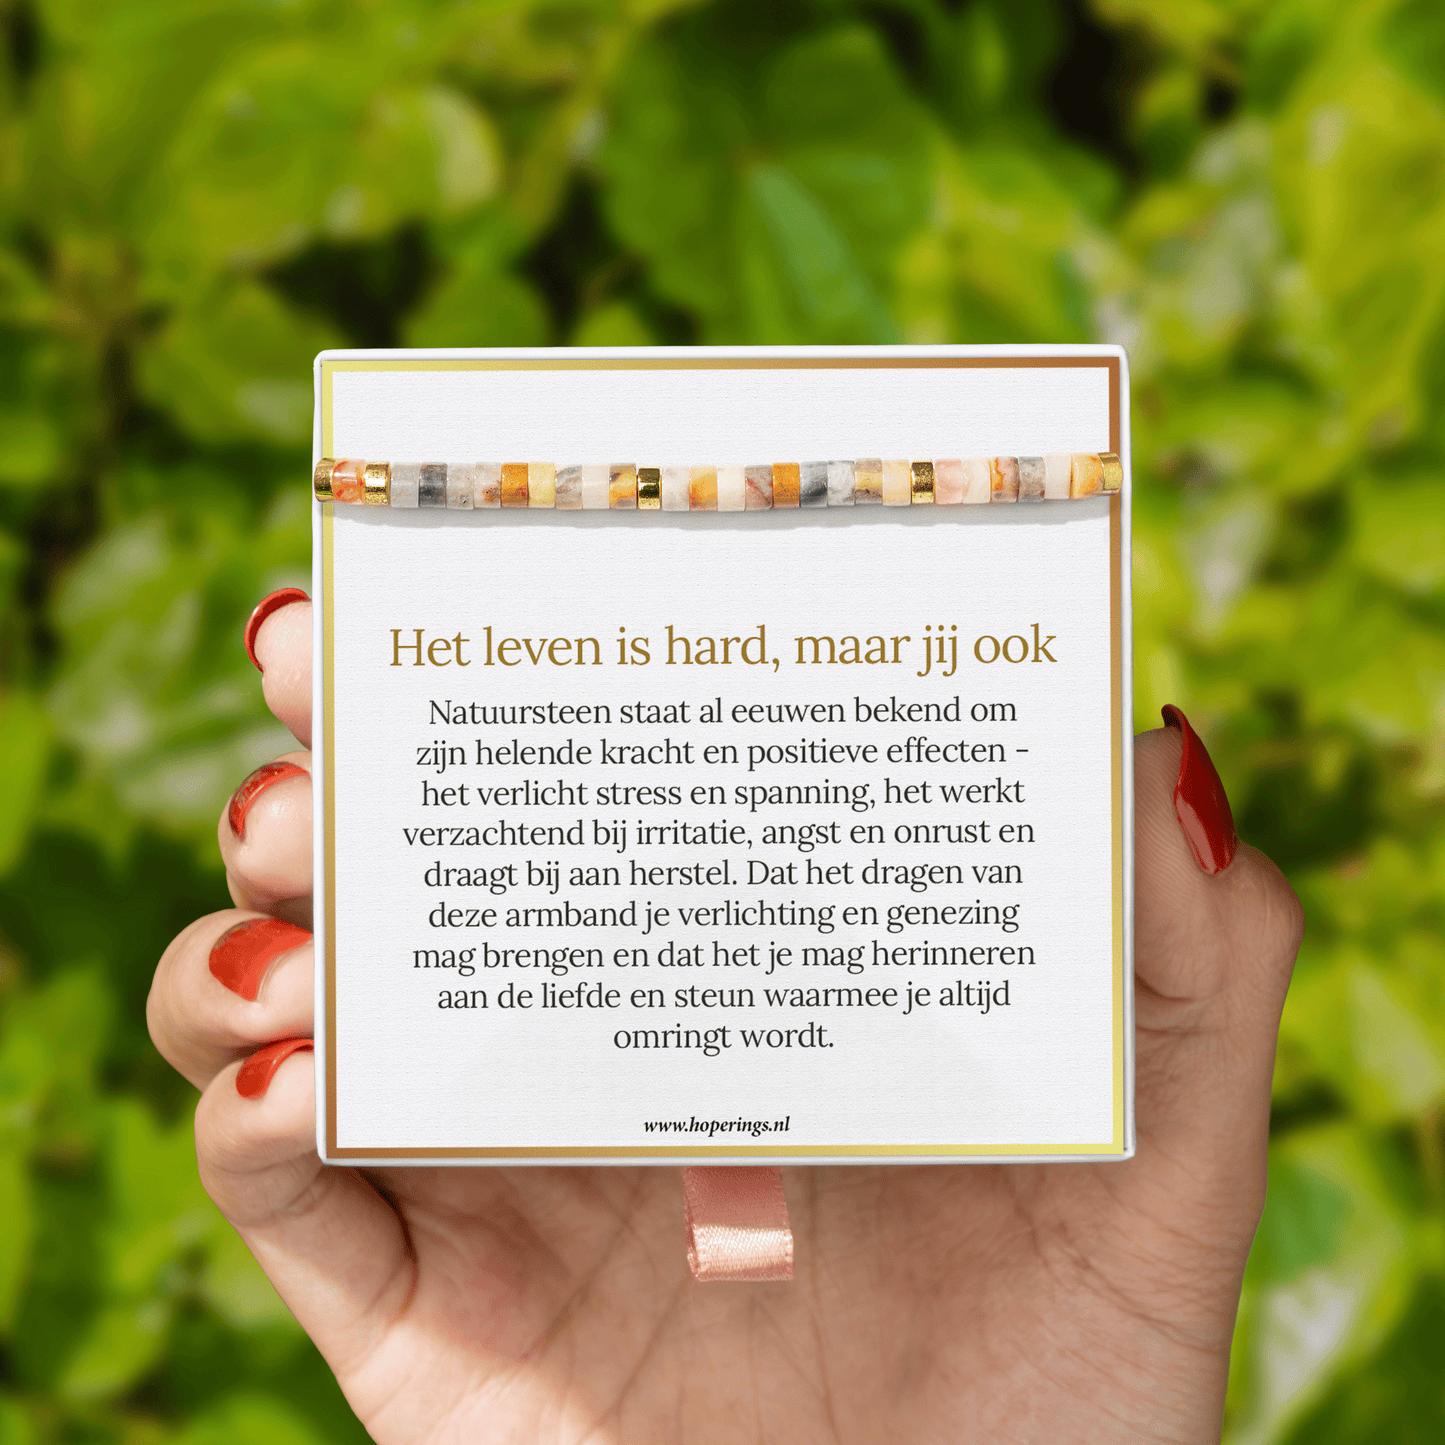 Het leven is hard, maar jij ook
Natuursteen staat al eeuwen bekend om
zijn helende kracht en positieve effecten -
het verlicht stress en spanning, het werkt
verzachtend bij irritatie, angst en onrust en
draagt bij aan herstel. Dat het dragen van
deze armband je verlichting en genezing
mag brengen en dat het je mag herinneren
aan de liefde en steun waarmee je altijd
omringt wordt.
www.hoperings.nl